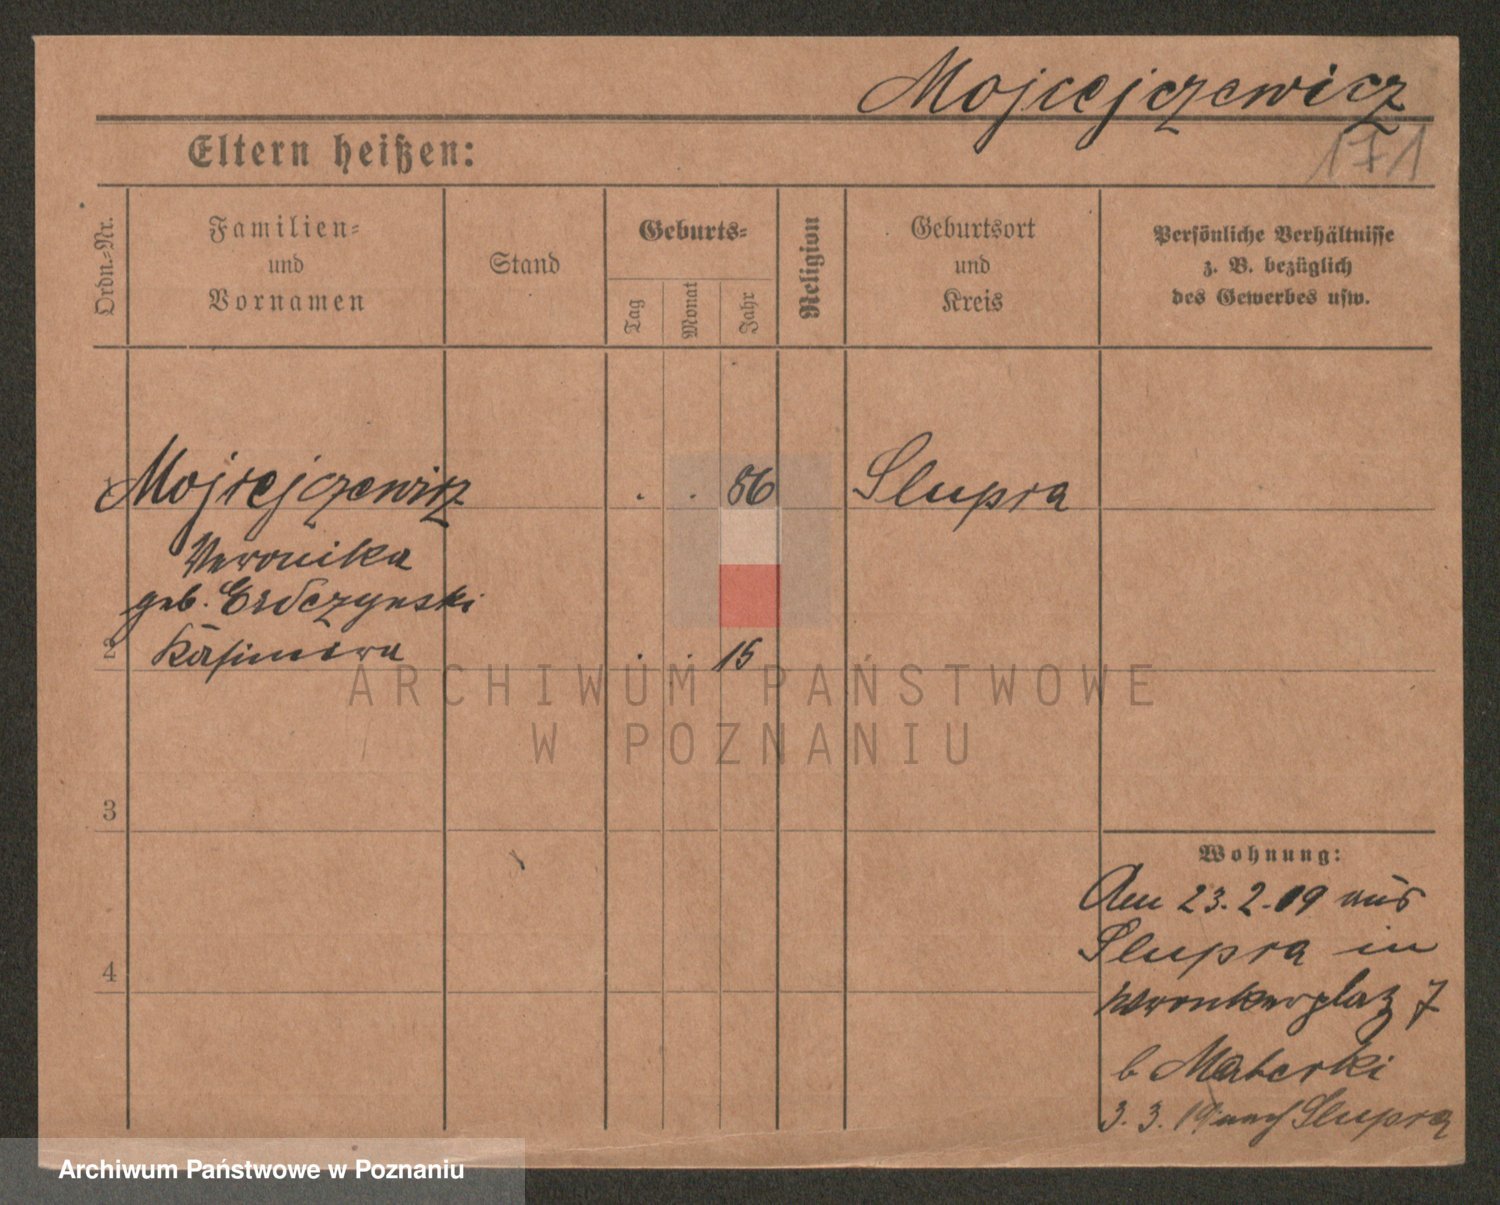 Mojcejczewicz
171
Eltern heißen:
Ordn.-Nr.
Familien-
und
Vornamen
Stand
Geburts-
Tag
Monat
Jahr
Religion
Geburtsort
und
Kreis
Persönliche Verhältnisse
z. B. bezüglich
des Gewerbes usw.
1 Mojcejczewicz . . 86 Slupia
Veronika
geb.
2 Kasimira . . 15
ARCHIWUM PAŃSTWOWE
W POZNANIU
3
Wohnung:
Am 23.2.19 aus
Slupia in
4
Wronkerplatz 7
b
3.3.19 nach Slupia
Archiwum Państwowe w Poznaniu